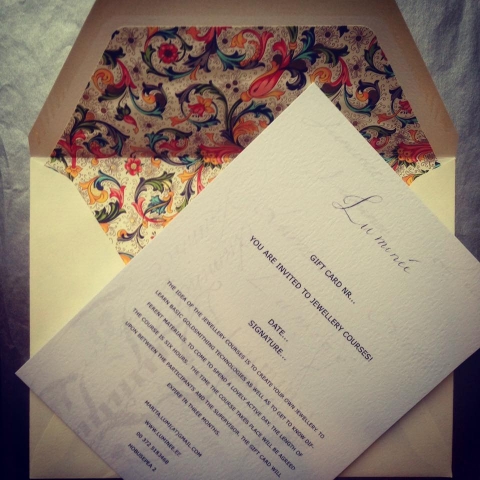 Luminée
GIFT CARD NR...
YOU ARE INVITED TO JEWELLERY COURSES!
DATE...
SIGNATURE...
THE IDEA OF THE JEWELLERY COURSES IS TO CREATE YOUR OWN JEWELLERY TO
LEARN BASIC GOLDSMITHING TECHNOLOGIES AS WELL AS TO GET TO KNOW DIF-
FERENT MATERIALS, TO COME TO SPEND A LOVELY ACTIVE DAY. THE LENGTH OF
THE COURSE IS SIX HOURS. THE TIME THE COURSE TAKES PLACE WILL BE AGREED
UPON BETWEEN THE PARTICIPANTS AND THE SUPERVISOR. THE GIFT CARD WILL
EXPIRE IN THREE MONTHS.
WWW.LUMINEE.EE